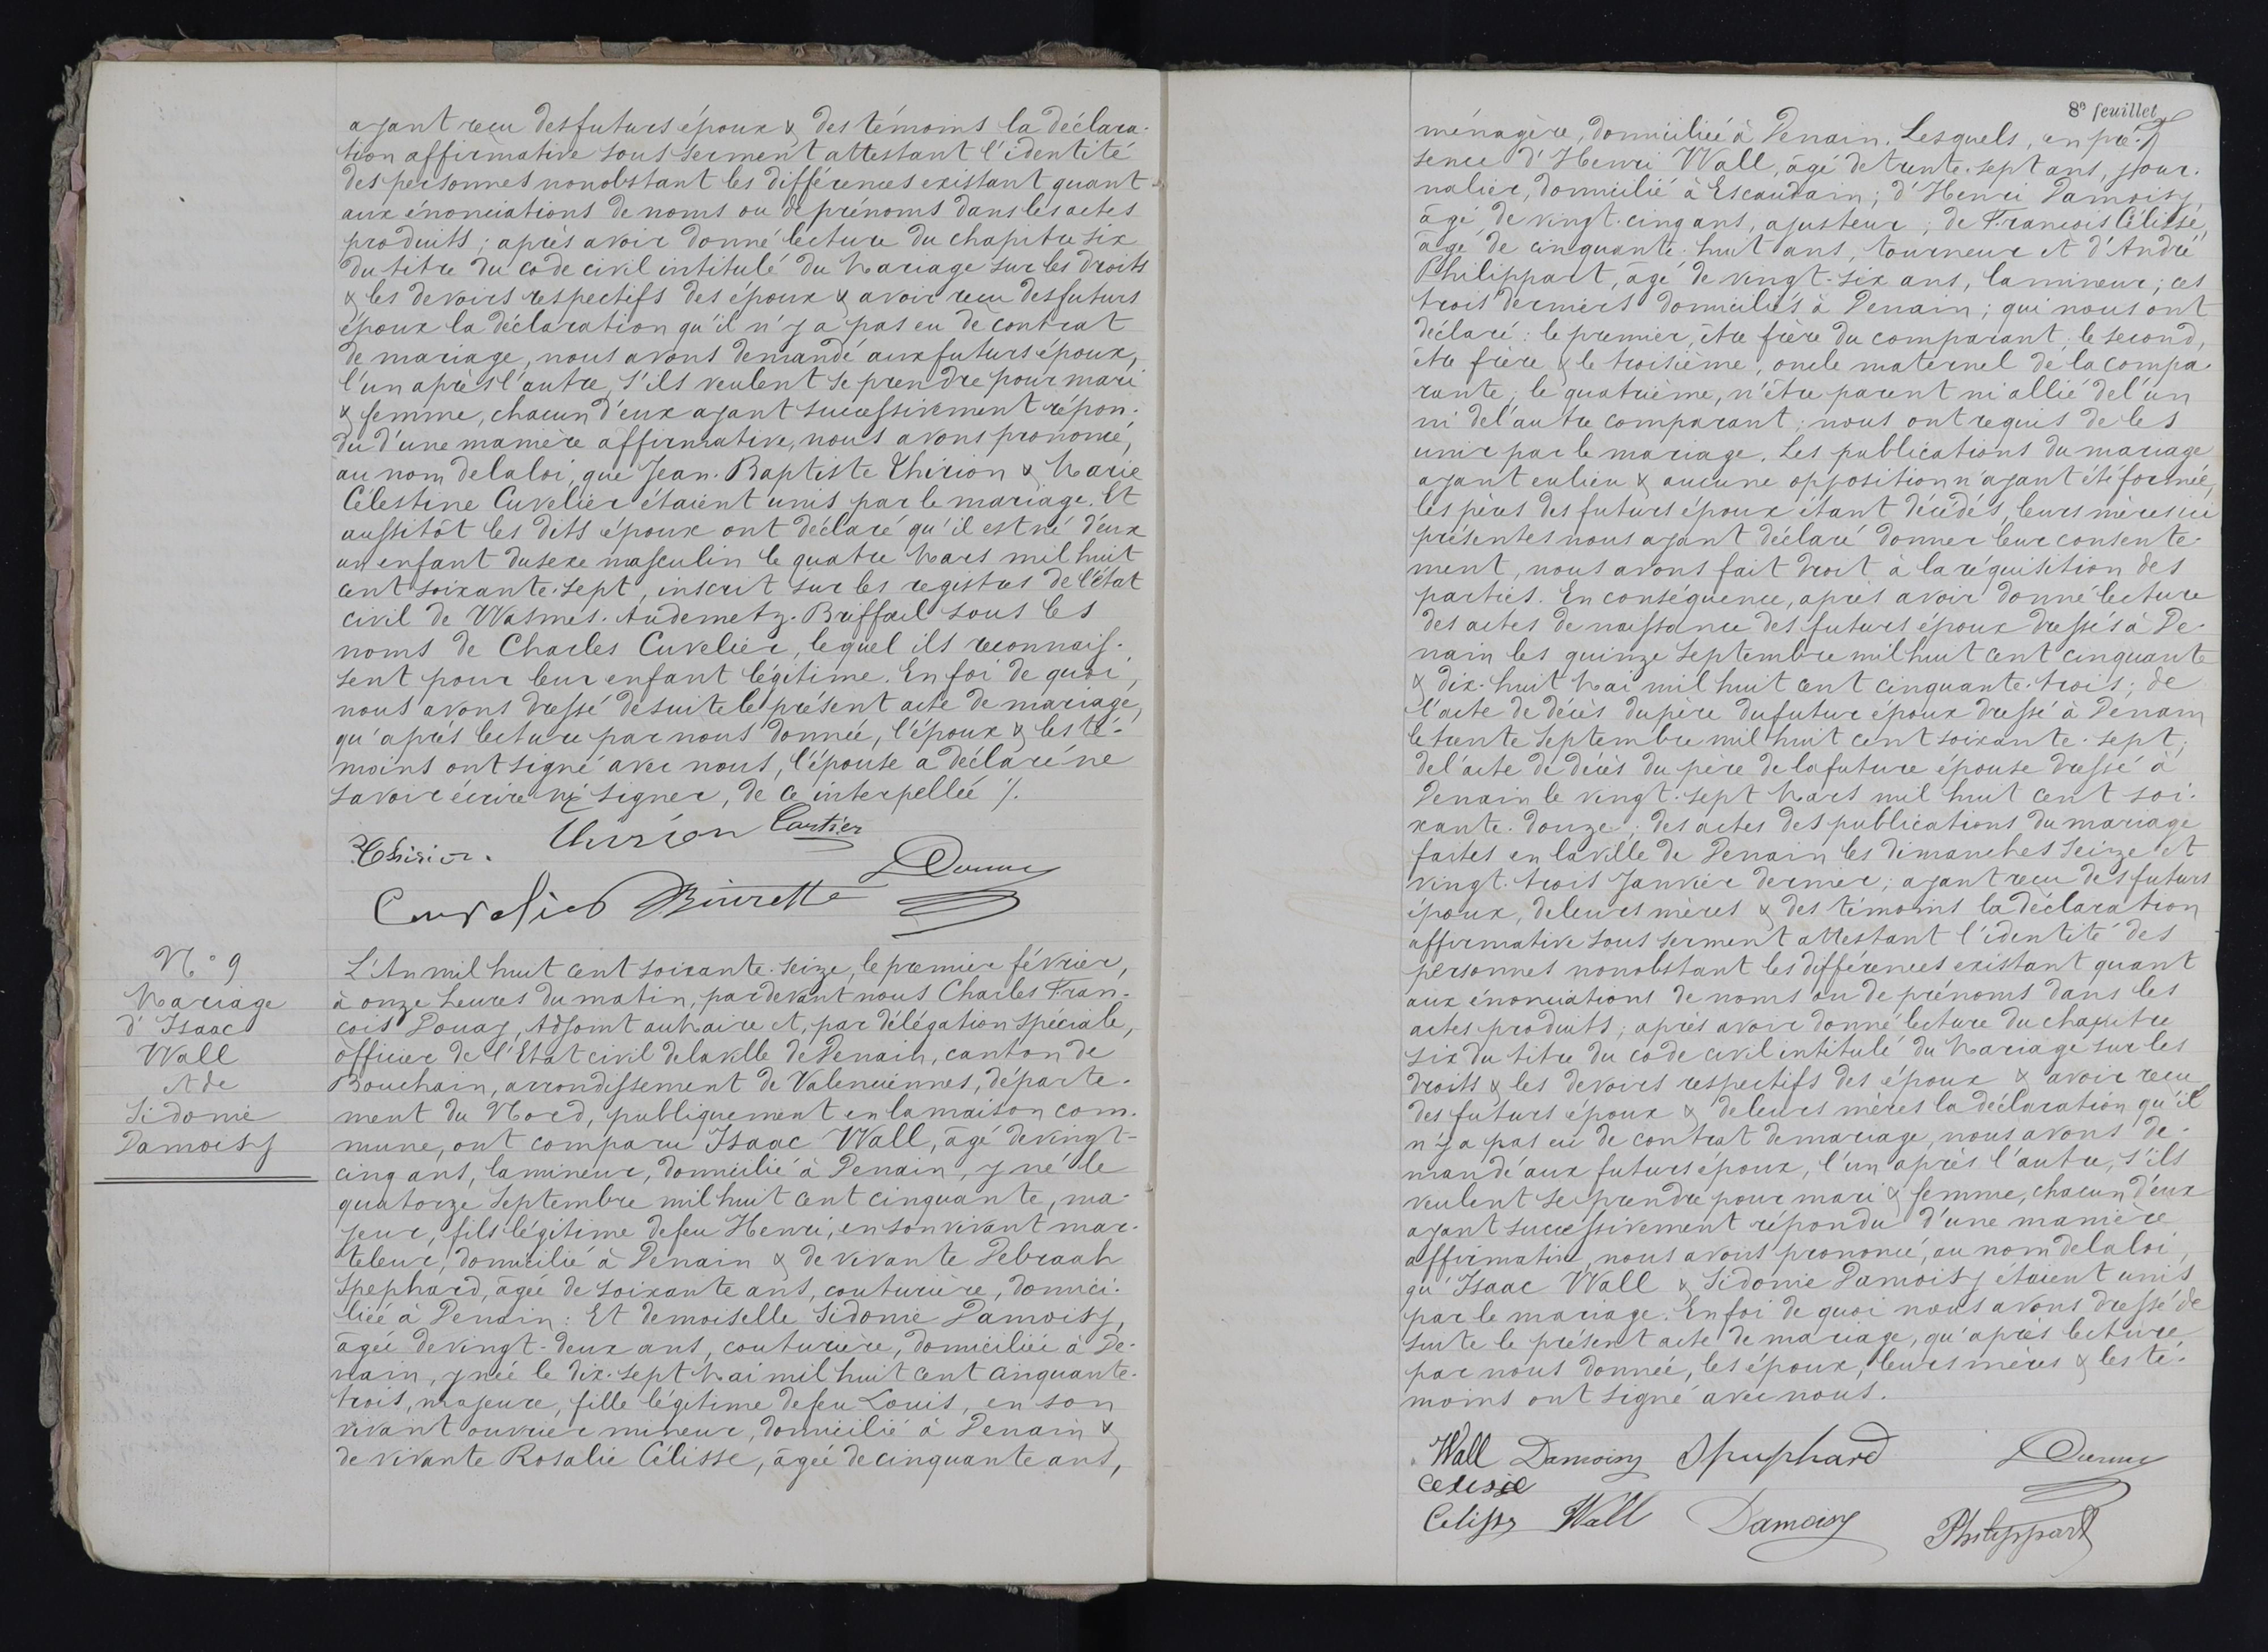 ayant reçu des futurs époux & des témoins la déclara-
tion affirmative sous serment attestant l'identité
des personnes nonobstant les différences existant quant
aux énonciations de noms ou de prénoms dans les actes
produits ; après avoir donné lecture du chapitre six
du titre du code civil intitulé du Mariage sur les droits
& les devoirs respectifs des époux & avoir reçu des futurs
époux la déclaration qu'il n'y a pas eu de contrat
de mariage, nous avons demandé aux futurs époux,
l'un après l'autre, s'ils veulent se prendre pour mari
& femme, chacun d'eux ayant successivement répon-
du d'une manière affirmative, nous avons prononcé,
au nom de la loi, que Jean-Baptiste Thirion & Marie
Célestine Cuvelier étaient unis par le mariage. Et
aussitôt les dits époux ont déclaré qu'il est né d'eux
un enfant du sexe masculin le quatre Mars mil huit
cent soixante-sept, inscrit sur les registres de l'état
civil de Wasmes-Audemetz-Briffœil sous les
noms de Charles Cuvelier, lequel ils reconnais-
sent pour leur enfant légitime. En foi de quoi,
nous avons dressé de suite le présent acte de mariage,
qu'après lecture par nous donnée, l'époux & les té-
moins ont signé avec nous, l'épouse a déclaré ne
savoir écrire ni signer, de ce interpellée ./.
Thirion. Thirion Cartier
Cuvelier Binrette Douay
N° 9
Mariage
d'Isaac
Wall
et de
Sidonie
Damoisy
L'An mil huit cent soixante-seize, le premier février,
à onze heures du matin, pardevant nous Charles Fran-
çois Douay, Adjoint au Maire et, par délégation spéciale,
officier de l'Etat civil de la ville de Denain, canton de
Bouchain, arrondissement de Valenciennes, départe-
ment du Nord, publiquement en la maison com-
mune, ont comparu Isaac Wall, âgé de vingt-
cinq ans, lamineur, domicilié à Denain, y né le
quatorze Septembre mil huit cent cinquante, ma-
jeur, fils légitime de feu Henri, en son vivant mar-
teleur, domicilié à Denain & de vivante Debraah
Spephard, âgée de soixante ans, couturière, domici-
liée à Denain : Et demoiselle Sidonie Damoisy,
âgée de vingt-deux ans, couturière, domiciliée à De-
nain, y née le dix-sept Mai mil huit cent cinquante-
trois, majeure, fille légitime de feu Louis, en son
vivant ouvrier mineur, domicilié à Denain &
de vivante Rosalie Célisse, âgée de cinquante ans,
8e feuillet
ménagère, domiciliée à Denain. Lesquels, en pré-
sence d'Henri Wall, âgé de trente-sept ans, jour-
nalier, domicilié à Escaudain ; d'Henri Damoisy,
âgé de vingt-cinq ans, ajusteur ; de François Célisse,
âgé de cinquante-huit ans, tourneur et d'André
Philippart, âgé de vingt-six ans, lamineur ; ces
trois derniers domiciliés à Denain ; qui nous ont
déclaré : le premier, être frère du comparant, le second,
être frère & le troisième, oncle maternel de la compa-
rante ; le quatrième, n'être parent ni allié de l'un
ni de l'autre comparant ; nous ont requis de les
unir par le mariage. Les publications du mariage
ayant eu lieu & aucune opposition n'ayant été formée,
les pères des futurs époux étant décédés, leurs mères ici
présentes nous ayant déclaré donner leur consente-
ment, nous avons fait droit à la réquisition des
parties. En conséquence, après avoir donné lecture
des actes de naissance des futurs époux dressés à De-
nain les quinze Septembre mil huit cent cinquante
& dix-huit Mai mil huit cent cinquante-trois ; de
l'acte de décès du père du futur époux dressé à Denain
le trente Septembre mil huit cent soixante-sept ;
de l'acte de décès du père de la future épouse dressé à
Denain le vingt-sept Mars mil huit cent soi-
xante-douze ; des actes des publications du mariage
faites en la ville de Denain les dimanches seize et
vingt-trois Janvier dernier ; ayant reçu des futurs
époux, de leurs mères & des témoins la déclaration
affirmative sous serment attestant l'identité des
personnes nonobstant les différences existant quant
aux énonciations de noms ou de prénoms dans les
actes produits ; après avoir donné lecture du chapitre
six du titre du code civil intitulé du Mariage sur les
droits & les devoirs respectifs des époux & avoir reçu
des futurs époux & de leurs mères la déclaration qu'il
n'y a pas eu de contrat de mariage, nous avons de-
mandé aux futurs époux, l'un après l'autre, s'ils
veulent se prendre pour mari & femme, chacun d'eux
ayant successivement répondu d'une manière
affirmative, nous avons prononcé, au nom de la loi,
qu'Isaac Wall & Sidonie Damoisy étaient unis
par le mariage. En foi de quoi nous avons dressé de
suite le présent acte de mariage, qu'après lecture
par nous donnée, les époux, leurs mères & les té-
moins ont signé avec nous.
Wall Damoisy Spuphard Douay
Celisse
Celisse Wall Damoisy Philippart